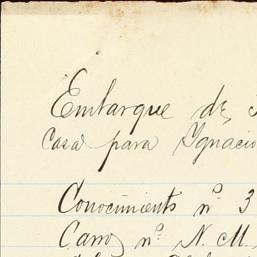 Embarque de
Casa para Ignacio
Conocimiento nº 3
Carro nº N. M.